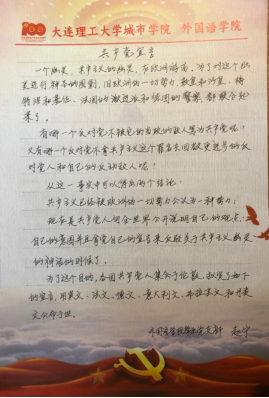 100
大连理工大学城市学院 外国语学院
共产党宣言
一个幽灵,共产主义的幽灵,在欧洲游荡。为了对这个幽
灵进行神圣的围剿,旧欧洲的一切势力,教皇和沙皇、梅
特涅和基佐、法国的激进派和德国的警察,都联合起
来了。
有哪一个反对党不被它的当政的敌人骂为共产党呢?
又有哪一个反对党不拿共产主义这个罪名去回敬更进步的反
对党人和自己的反动敌人呢?
从这一事实中可以得出两个结论:
共产主义已经被欧洲的一切势力公认为一种势力;
现在是共产党人向全世界公开说明自己的观点、
自己的意图并且拿党自己的宣言来反驳关于共产主义幽灵
的神话的时候了。
为了这个目的,各国共产党人集会于伦敦,拟定了如下
的宣言,用英文、法文、德文、意大利文、弗拉芒文和丹麦
文公布于世。
外国语学院